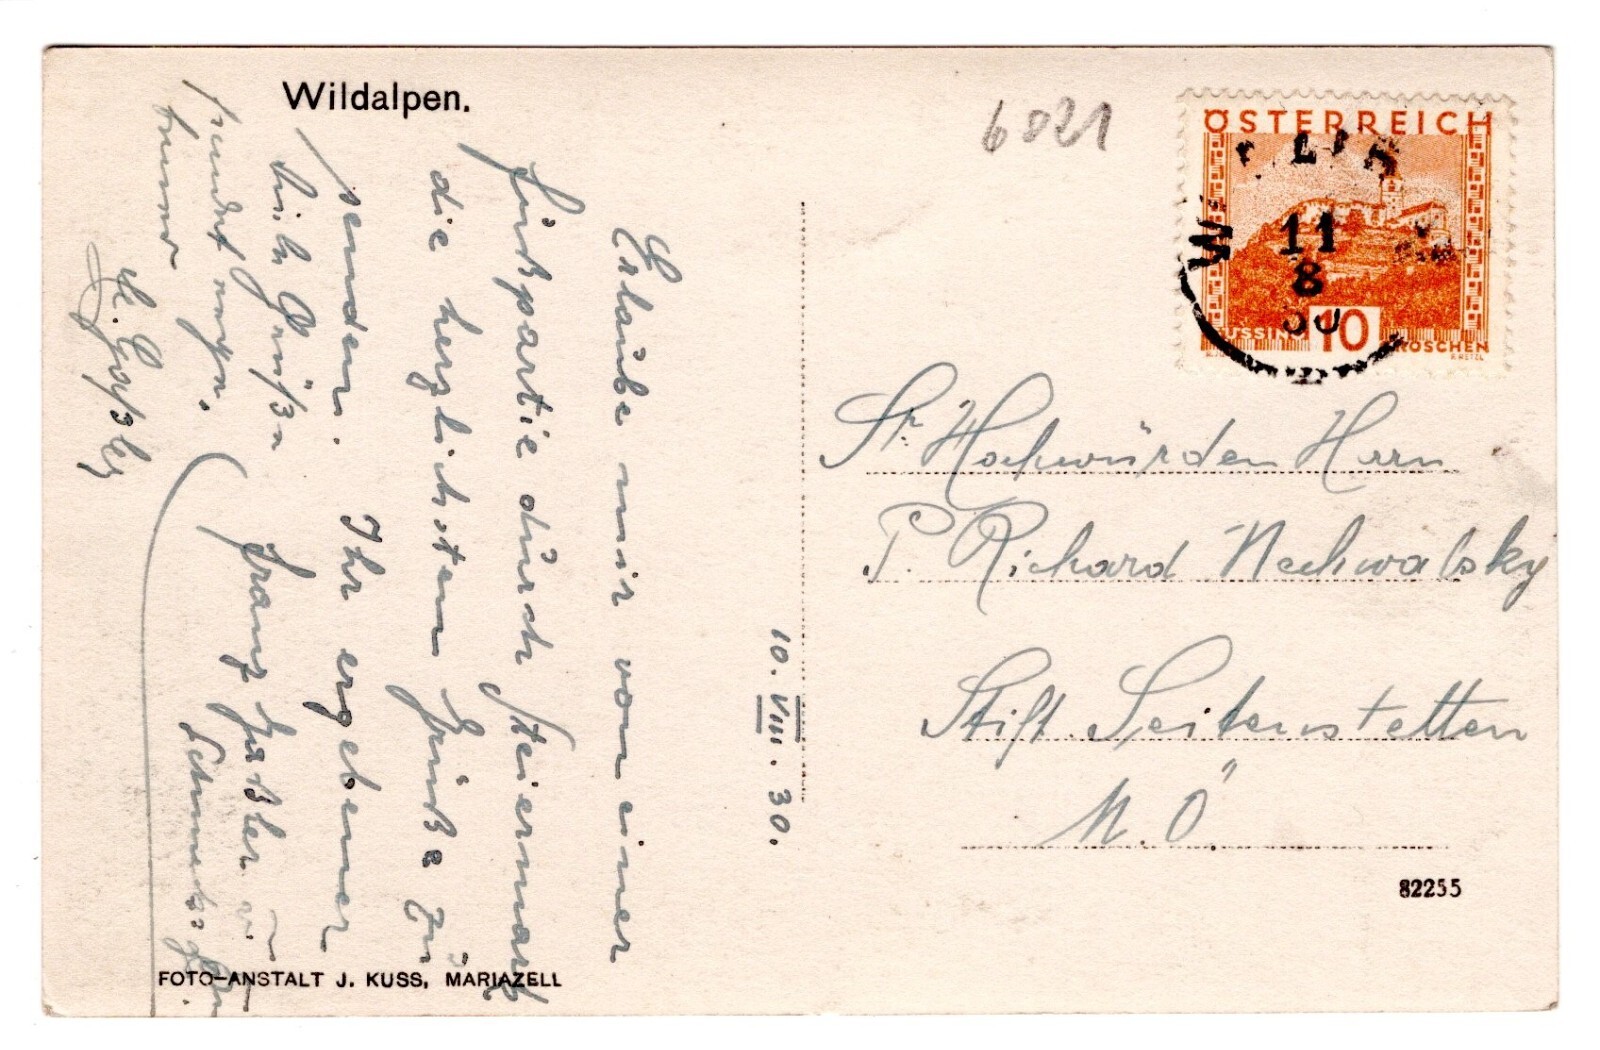 Wildalpen.
Erlaube mir von einer
Fußpartie durch Steiermark
die herzlichsten Grüße zu
senden. Ihr ergebener
Franz
10. VIII. 30.
6021
ÖSTERREICH
11
8
30
10
GROSCHEN
Sr. Hochwürden Herrn
P. Richard Nechwalsky
Stift Seitenstetten
N. Ö
82255
FOTO-ANSTALT J. KUSS, MARIAZELL